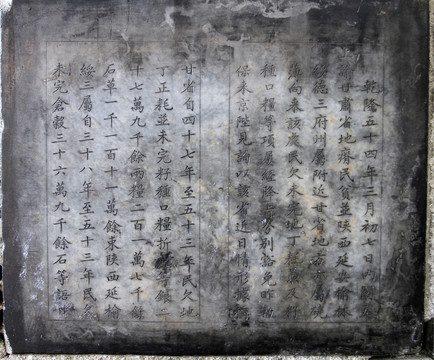 乾隆五十四年三月初七日內閣
上諭甘肅省地瘠民貧並陝西延安榆林
綏德三府州屬附近甘省地方亦屬磽
瘠向來該處民欠未完地丁錢糧及籽
種口糧等項屢經降旨分別豁免昨勒
保來京陛見詢以該省近日情形據稱
甘省自四十七年至五十三年民欠地
丁正耗並未完籽種口糧折等銀二
十七萬九千餘兩糧二百一萬七千餘
石草一千一百十一萬餘束陝西延榆
綏三屬自三十八年至五十三年民欠
未完倉穀三十六萬九千餘石等語